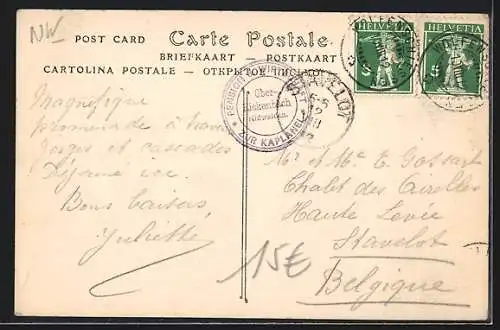 NW
POST CARD
Carte Postale
BRIEFKAART — POSTKAART
CARTOLINA POSTALE — ОТКРЫТОЕ ПИСЬМО
HELVETIA HELVETIA
5 5
WOLFENSCHIESSEN
PENSION
ZUR KAPLANEI
Ober-
rickenbach
Nidwalden
STAVELOT
Magnifique
promenade à travers
gorges et cascades
Déjeuné ici.
Bons baisers
Juliette
Mr et Me E. Gossart
Chalet des Airelles
Haute Levée
Stavelot
Belgique
15€